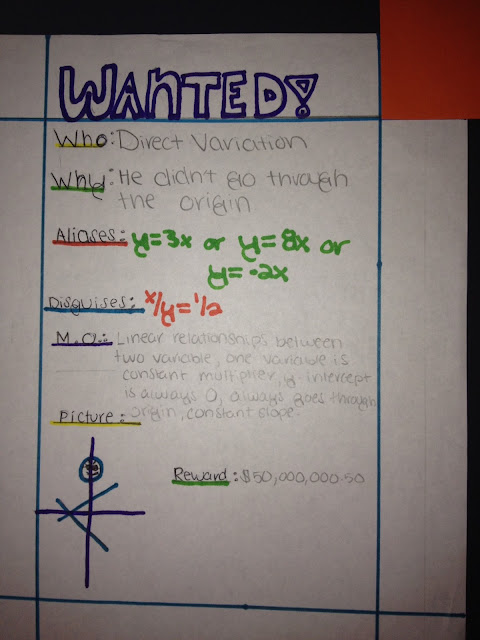 WANTED!
Who: Direct Variation
Why: He didn't go through
the origin
Aliases: y=3x or y=8x or
y=-2x
Disguises: x/y = 1/2
M.O.: Linear relationships between
two variable, one variable is
constant multiplier, y-intercept
is always 0, always goes through
origin, constant slope.
Picture:
Reward: $50,000,000.50